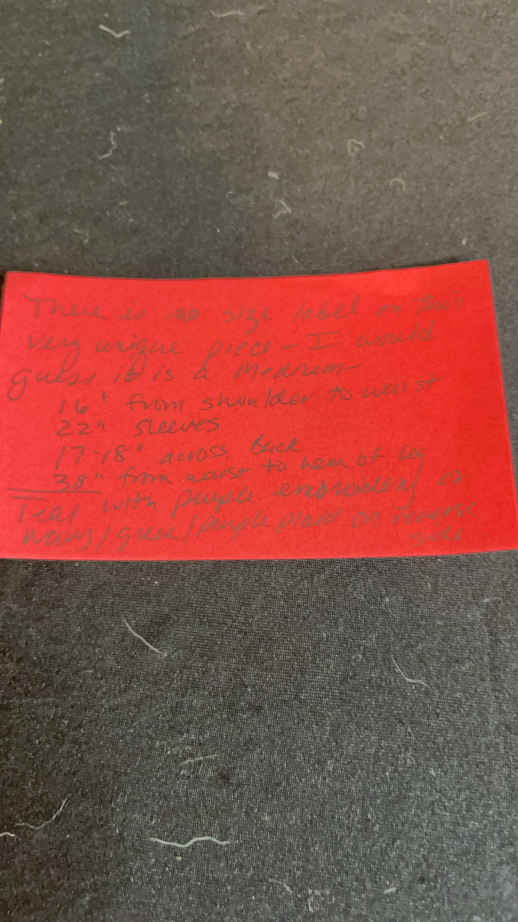 There is no size label on this
very unique piece - I would
guess it is a medium
16" from shoulder to waist
22" sleeves
17-18" across back
38" from waist to hem of leg
Teal with purple embroidery or
navy/green/purple plaid on reverse
side